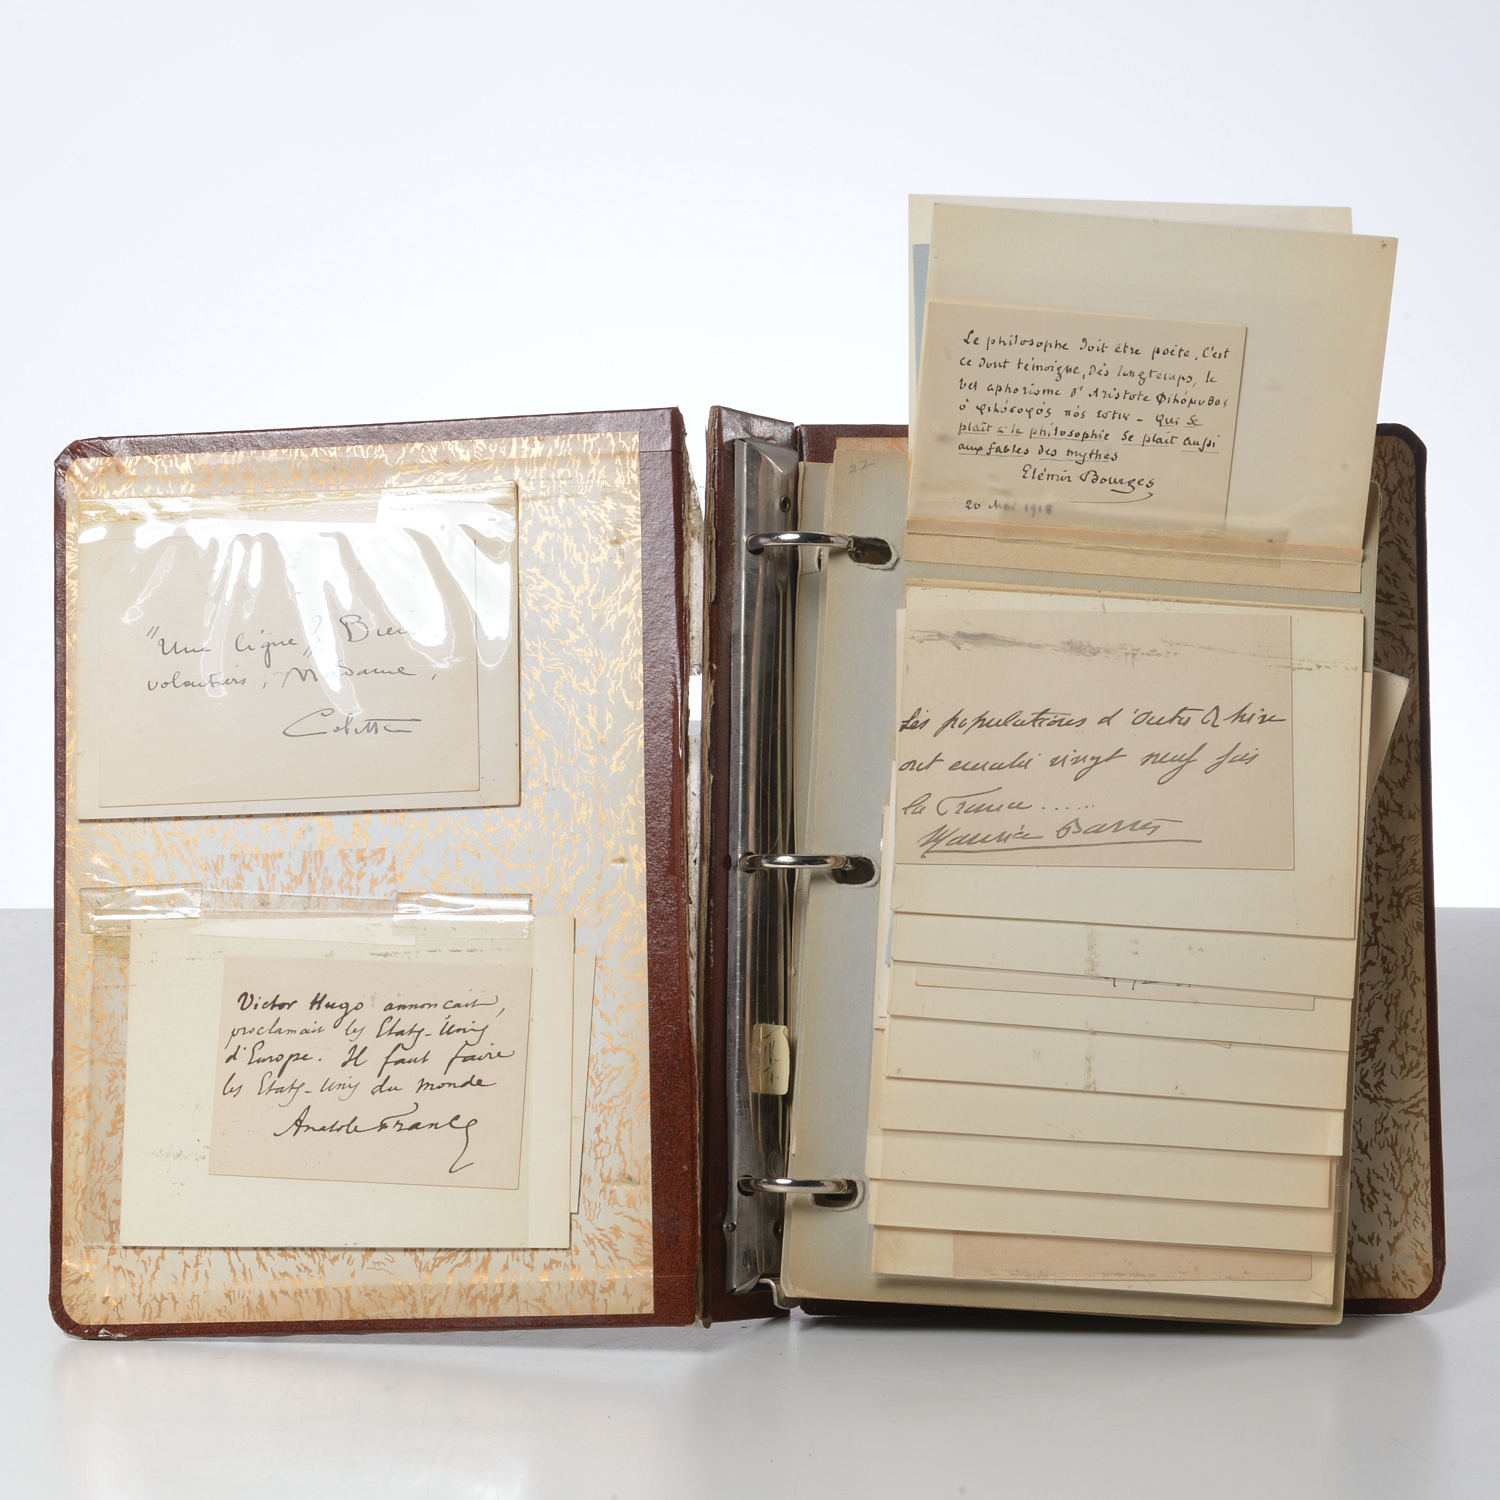 "Une ligne"? Bien
volontiers, Madame,
Colette
Victor Hugo annonçait,
proclamait les Etats-Unis
d'Europe. Il faut faire
les Etats-Unis du monde
Anatole France
22
Le philosophe doit être poète, C'est
ce dont témoigne, dès longtemps, le
bel aphorisme d'Aristote Φιλόμυθος
ὁ φιλόσοφός πώς εστιν - Qui se
plaît à la philosophie se plaît aussi
aux fables des mythes
Elémir Bourges
20 Mai 1918
Les populations d'Outre Rhin
ont envahi vingt neuf fois
la France......
Maurice Barrès